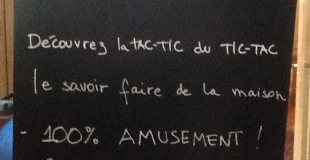 Découvrez la tAC-TIC du TIC-TAC
le savoir faire de la maison
- 100% AMUSEMENT !